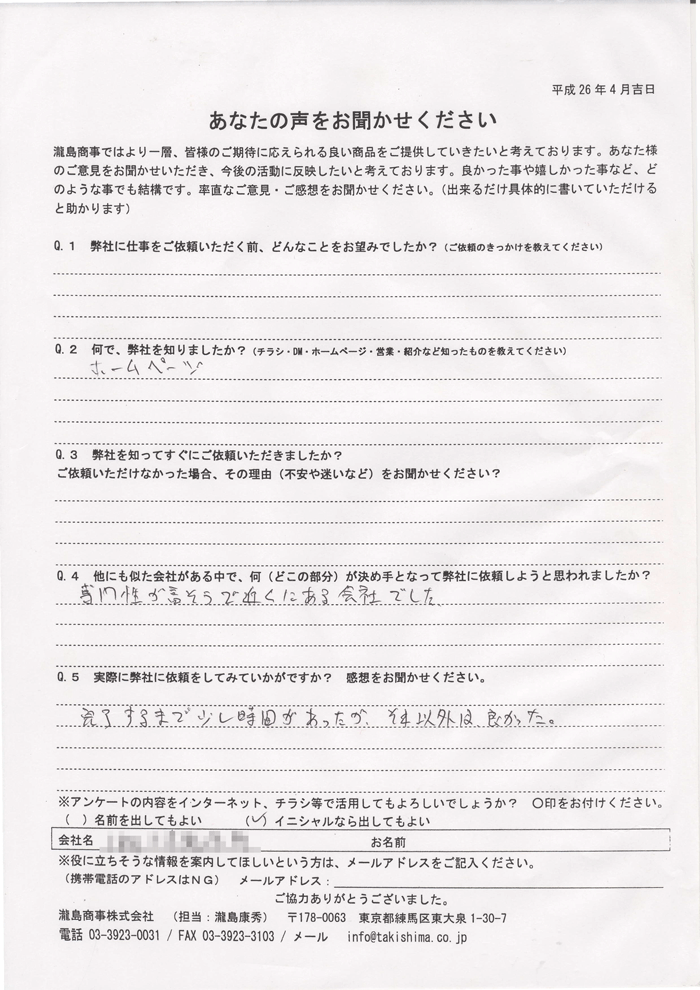 平成26年4月吉日
あなたの声をお聞かせください
瀧島商事ではより一層、皆様のご期待に応えられる良い商品をご提供していきたいと考えております。あなた様
のご意見をお聞かせいただき、今後の活動に反映したいと考えております。良かった事や嬉しかった事など、ど
のような事でも結構です。率直なご意見・ご感想をお聞かせください。(出来るだけ具体的に書いていただける
と助かります)
Q.1 弊社に仕事をご依頼いただく前、どんなことをお望みでしたか?(ご依頼のきっかけを教えてください)
Q.2 何で、弊社を知りましたか?(チラシ・DM・ホームページ・営業・紹介など知ったものを教えてください)
ホームページ
Q.3 弊社を知ってすぐにご依頼いただきましたか?
ご依頼いただけなかった場合、その理由(不安や迷いなど)をお聞かせください?
Q.4 他にも似た会社がある中で、何(どこの部分)が決め手となって弊社に依頼しようと思われましたか?
専門性が高そうで近くにある会社でした。
Q.5 実際に弊社に依頼をしてみていかがですか? 感想をお聞かせください。
完了するまで少し時間があったが、それ以外は良かった。
※アンケートの内容をインターネット、チラシ等で活用してもよろしいでしょうか? ○印をお付けください。
( )名前を出してもよい (✓)イニシャルなら出してもよい
会社名 お名前
※役に立ちそうな情報を案内してほしいという方は、メールアドレスをご記入ください。
(携帯電話のアドレスはNG) メールアドレス:
ご協力ありがとうございました。
瀧島商事株式会社 (担当:瀧島康秀) 〒178-0063 東京都練馬区東大泉1-30-7
電話 03-3923-0031 / FAX 03-3923-3103 / メール info@takishima.co.jp